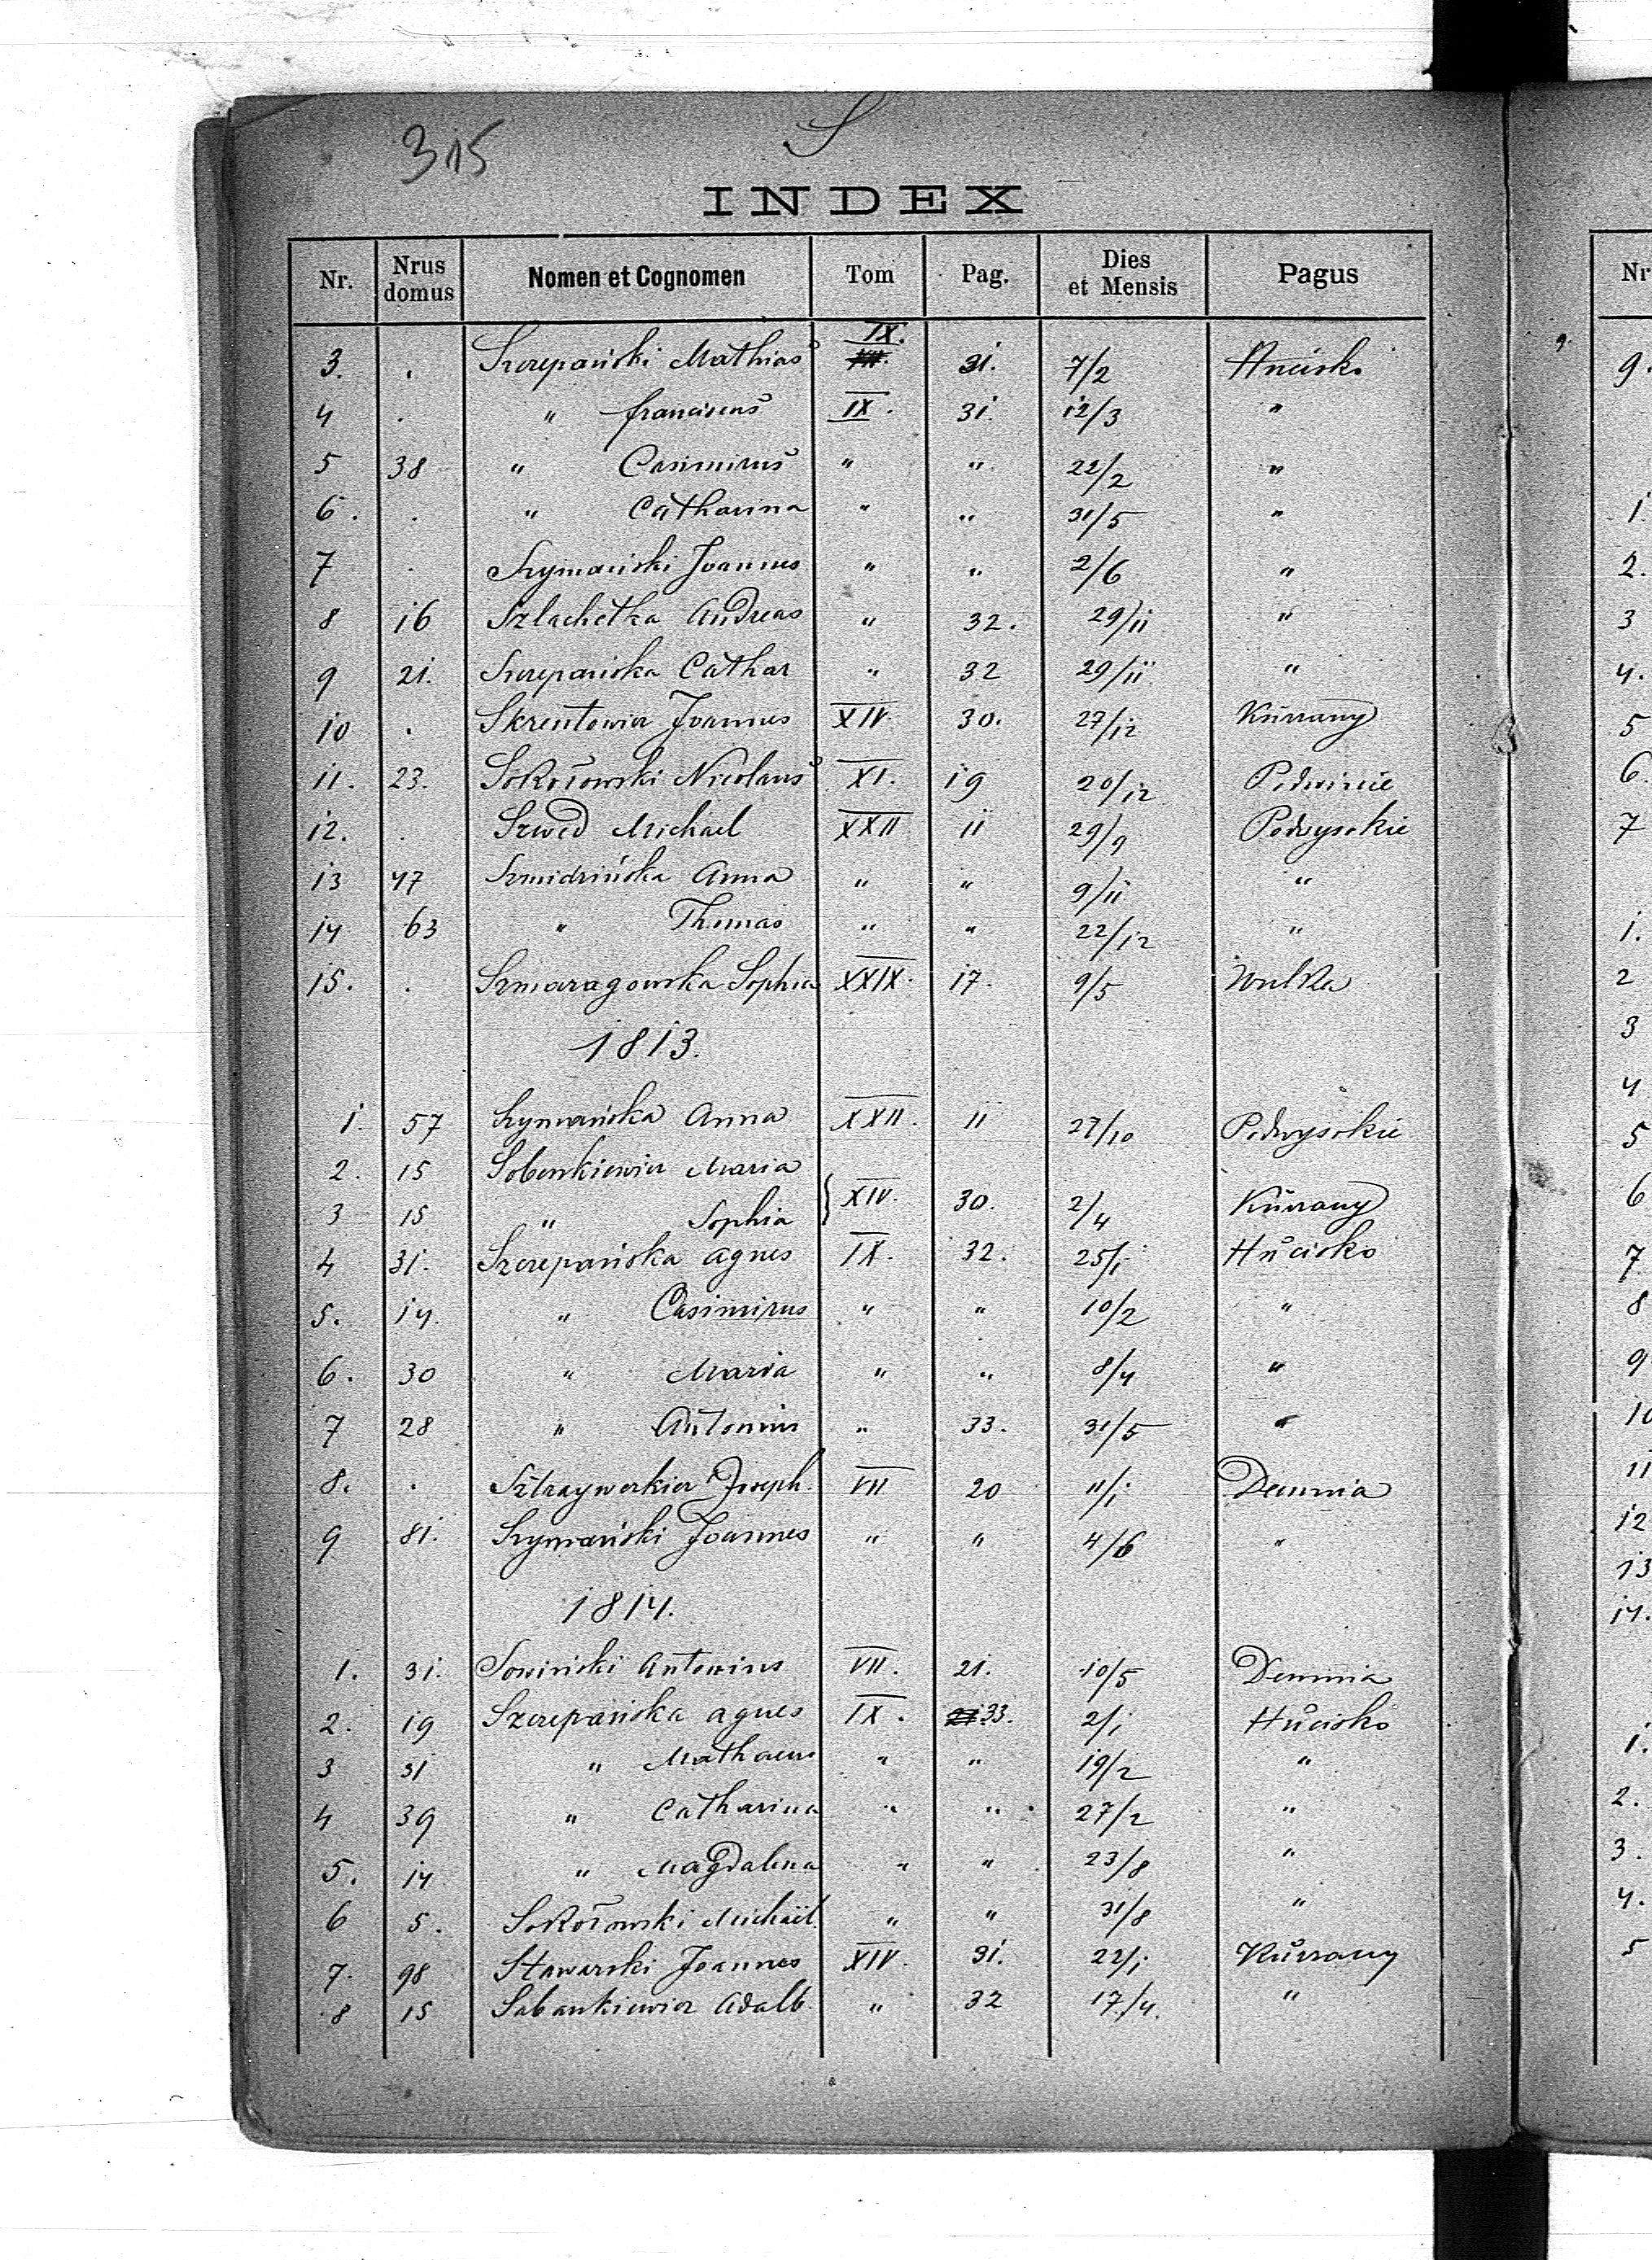 315
S
INDEX
Nr. Nrus domus Nomen et Cognomen Tom Pag. Dies et Mensis Pagus
3. . Szczepański Mathias IX. 31. 7/2 Hucisko
4 . " franciscus IX. 31. 12/3 "
5 38 " Casimirus " " 22/2 "
6. . " Catharina " " 31/5 "
7 . Szymański Joannes " " 2/6 "
8 16 Szlachetka Andreas " 32. 29/11 "
9 21. Szczepańska Cathar " 32 29/11 "
10 . Skrentowicz Joannes XIV 30. 27/12 Kurzany
11. 23. Sokołowski Nicolaus XI. 19 20/12
12. . Szwed Michael XXII 11 29/9 Podwysokie
13 47 Szmidzińska Anna " " 9/11 "
14 63 " Thomas " " 22/12 "
15. . Szmaragowska Sophia XXIX. 17. 9/5 Wulka
1813.
1. 57 Szymańska Anna XXII. 11 27/10 Podwysokie
2. 15 Sobenkiewicz Maria
3 15 " Sophia } XIV. 30. 2/4 Kurzany
4 31. Szczepańska Agnes IX. 32. 25/1 Hucisko
5. 14. " Casimirus " " 10/2 "
6. 30 " Maria " " 8/4 "
7 28 " Antonius " 33. 31/5 "
8. . Joseph. VII 20 11/1 Demnia
9 81. Szymański Joannes " " 4/6 "
1814.
1. 31. Sowiński Antonius VII. 21. 10/5 Demnia
2. 19 Szczepańska Agnes IX. 33. 2/1 Hucisko
3 31 " Mathaeus " " 19/2 "
4 39 " Catharina " " 27/2 "
5. 14 " Magdalena " " 23/8 "
6 5. Sokołowski Michael. " " 31/8 "
7. 98 Stawarski Joannes XIV. 31. 22/1 Kurzany
8 15 Sabankiewicz Adalb. " 32 17/4. "
Nr
9.
1
2.
3
4.
5
6.
7
1.
2
3
4
5
6
7
8
9
10
11
12
13
14.
1.
2.
3.
4.
5